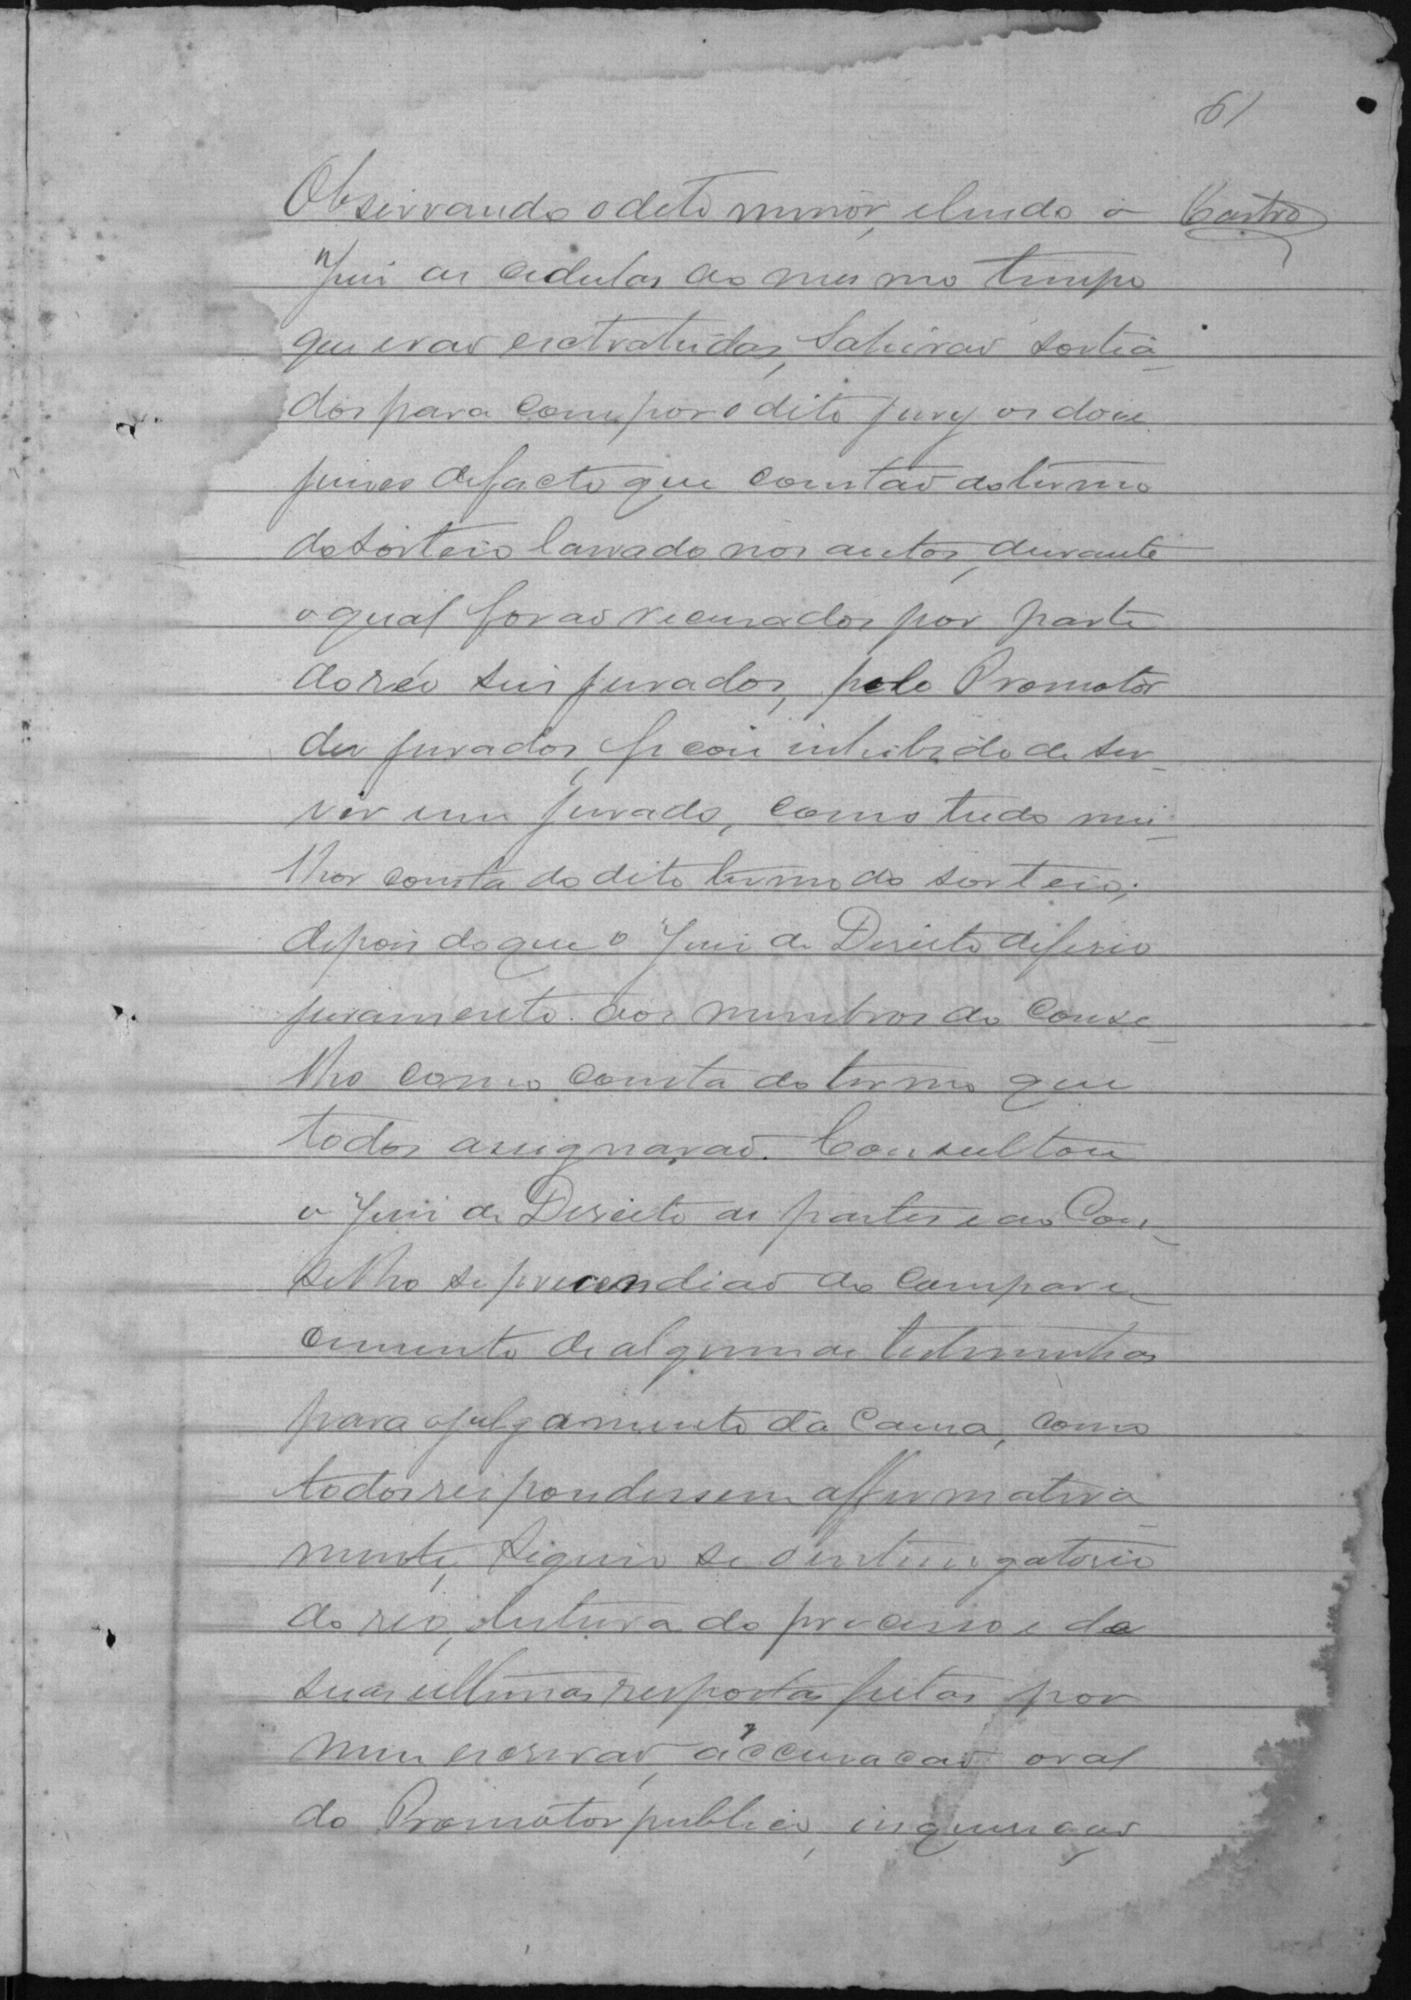 61
Observando o dito menor, e lendo o Castro
Juiz as cedulas ao mesmo tempo
que erão extrahidas, Sahirão sortea-
dos para compor o dito jury os doze
juizes de facto que constão do termo
do sorteio lavrado nos autos, durante
o qual forão recusados por parte
do réo seis jurados, pelo Promotor
dez jurados, ficou inhibido de ser-
vir um jurado, como tudo mi-
lhor consta do dito termo do sorteio;
depois do que o Juiz de Direito diferio
juramento aos membros do Conse-
lho como consta do termo que
todos assignarão. Consultou
o Juiz de Direito as partes e ao Con-
selho se prescendião do compare-
cimento de algumas testemunhas
para o julgamento da Causa, como
todos respondessem affirmativa-
mente, seguio se o interrogatorio
do réo, leitura do processo e da
suas ultimas respostas feitas por
mim escrivão, accusacão oral
do Promotor publico, inquirição